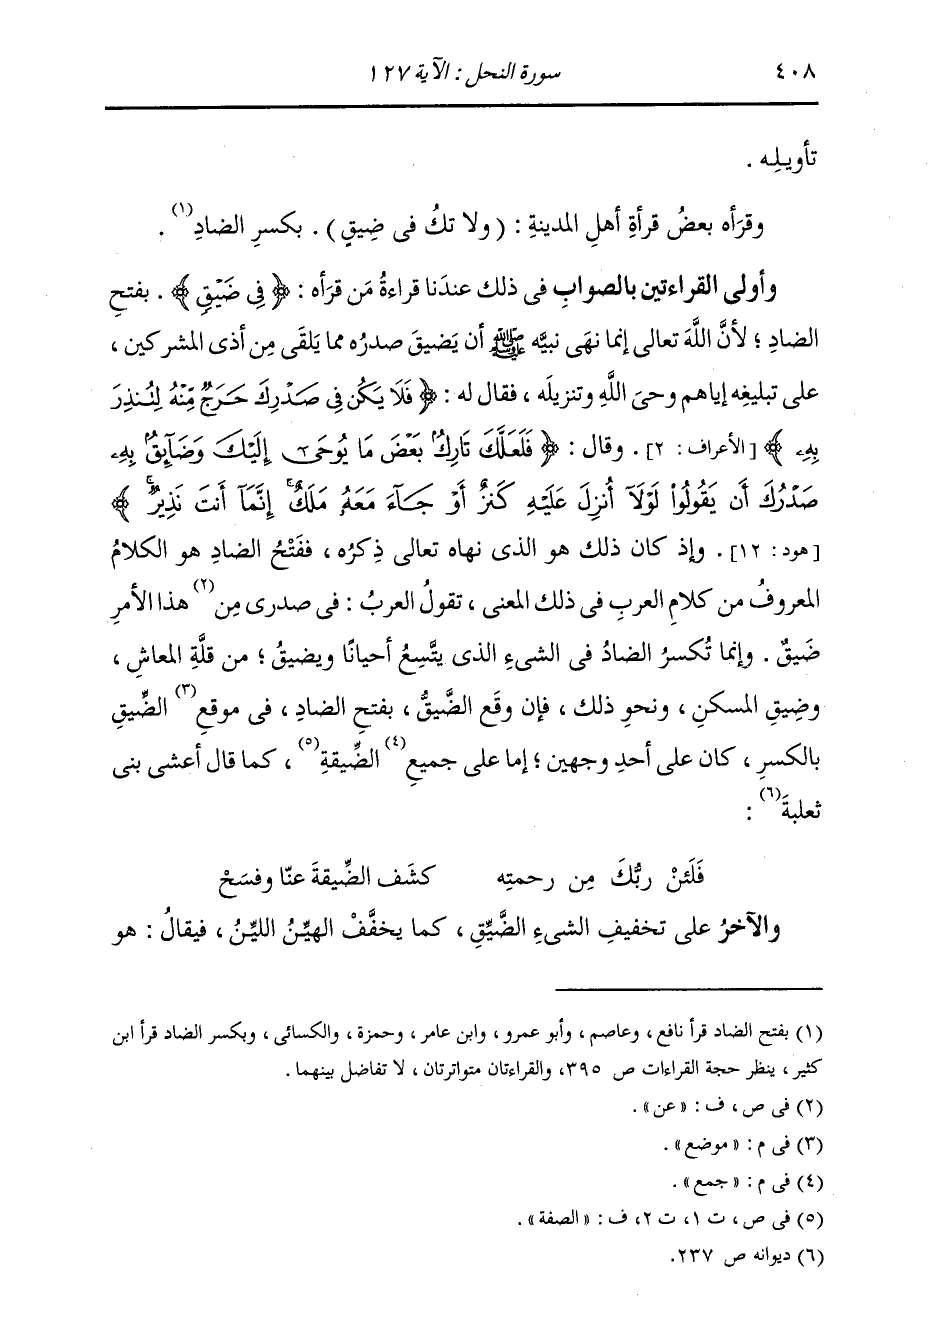 ٤٠٨ سورة النحل : الآية ١٢٧
تأويلِه .
وقرَأه بعضُ قرأةِ أهلِ المدينةِ : ( ولا تكُ فى ضِيقٍ ) . بكسرِ الضادِ(١) .
وأولى القراءتين بالصوابِ فى ذلك عندَنا قراءةُ مَن قرَأه : ﴿ فِي ضَيْقٍ ﴾ . بفتحِ
الضادِ ؛ لأنَّ اللَّهَ تعالى إنما نهَى نبيَّه ﷺ أن يَضيقَ صدرُه مما يَلقَى مِن أذى المشركين ،
على تبليغِه إياهم وحىَ اللَّهِ وتنزيلَه ، فقال له : ﴿ فَلَا يَكُن فِي صَدْرِكَ حَرَجٌ مِّنْهُ لِتُنذِرَ
بِهِۦ ﴾ [ الأعراف : ٢] . وقال : ﴿ فَلَعَلَّكَ تَارِكٌ بَعْضَ مَا يُوحَىٰٓ إِلَيْكَ وَضَآئِقٌ بِهِۦ
صَدْرُكَ أَن يَقُولُوا۟ لَوْلَآ أُنزِلَ عَلَيْهِ كَنزٌ أَوْ جَآءَ مَعَهُۥ مَلَكٌ ۚ إِنَّمَآ أَنتَ نَذِيرٌ ۚ ﴾
[هود : ١٢] . وإذ كان ذلك هو الذى نهاه تعالى ذِكرُه ، ففَتْحُ الضادِ هو الكلامُ
المعروفُ من كلامِ العربِ فى ذلك المعنى ، تقولُ العربُ : فى صدرى مِن(٢) هذا الأمرِ
ضَيقٌ . وإنما تُكسرُ الضادُ فى الشىءِ الذى يتَّسِعُ أحيانًا ويضيقُ ؛ من قلَّةِ المعاشِ ،
وضِيقِ المسكنِ ، ونحوِ ذلك ، فإن وقَع الضَّيقُ ، بفتحِ الضادِ ، فى موقعِ(٣) الضِّيقِ
بالكسرِ ، كان على أحدِ وجهين ؛ إما على جميعِ(٤) الضِّيقةِ(٥) ، كما قال أعشى بنى
ثعلبةَ(٦) :
فَلَئنْ ربُّكَ مِن رحمتِه كشَف الضِّيقةَ عنّا وفسَحْ
والآخرُ على تخفيفِ الشىءِ الضَّيِّقِ ، كما يخفَّفُ الهيِّنُ الليِّنُ ، فيقالُ : هو
(١) بفتح الضاد قرأ نافع ، وعاصم ، وأبو عمرو ، وابن عامر ، وحمزة ، والكسائى ، وبكسر الضاد قرأ ابن
كثير ، ينظر حجة القراءات ص ٣٩٥، والقراءتان متواترتان ، لا تفاضل بينهما .
(٢) فى ص ، ف : « عن » .
(٣) فى م : « موضع » .
(٤) فى م : « جمع » .
(٥) فى ص ، ت ١، ت ٢، ف : « الصفة » .
(٦) ديوانه ص ٢٣٧.